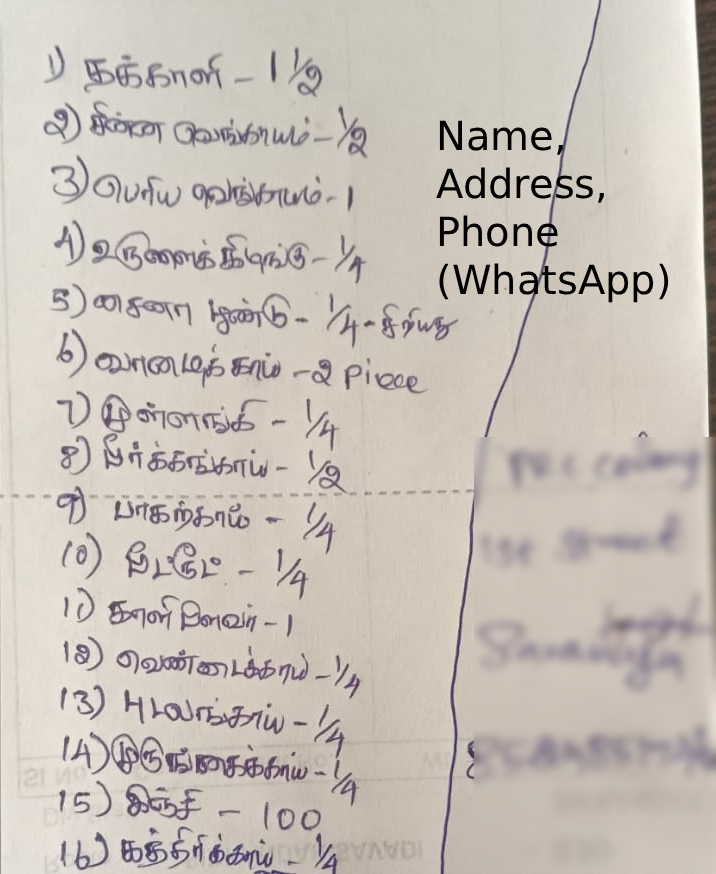 1) தக்காளி - 1 1/2
2) சின்ன வெங்காயம் - 1/2
3) பெரிய வெங்காயம் - 1
4) உருளைக்கிழங்கு - 1/4
5) சேனா பூண்டு - 1/4 - சிறியது
6) வாழைக்காய் - 2 Piece
7) முள்ளங்கி - 1/4
8) பீர்க்கங்காய் - 1/2
9) பாகற்காய் - 1/4
10) பீட்ரூட் - 1/4
11) காளிபிளவர் - 1
12) வெண்டைக்காய் - 1/4
13) புடலங்காய் - 1/4
14) முருங்கைக்காய் - 1/4
15) இஞ்சி - 100
16) கத்திரிக்காய் - 1/4
Name,
Address,
Phone
(WhatsApp)